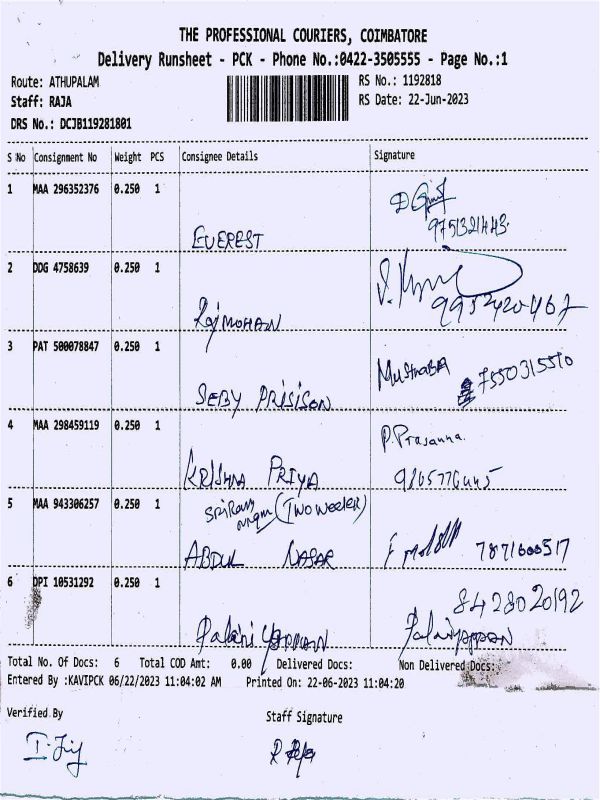 THE PROFESSIONAL COURIERS, COIMBATORE
Delivery Runsheet - PCK - Phone No.:0422-3505555 - Page No.:1
Route: ATHUPALAM RS No.: 1192818
Staff: RAJA RS Date: 22-Jun-2023
DRS No.: DCJB119281801
S No Consignment No Weight PCS Consignee Details Signature
1 MAA 296352376 0.250 1
9751321443
EVEREST
2 DDG 4758639 0.250 1
9952420467
RajMOHAN
3 PAT 500078847 0.250 1
MustHaBA 7550315510
SEBY PRISISON
4 MAA 298459119 0.250 1
P. Prasanna.
KRISHNA PRIYA
5 MAA 943306257 0.250 1
SRiRam (Two wheeler)
7871600517
ABDUL NASAR
6 DPI 10531292 0.250 1
8428020192
PalaniyAPPAN Palaniyappan
Total No. Of Docs: 6 Total COD Amt: 0.00 Delivered Docs: Non Delivered Docs:
Entered By :KAVIPCK 06/22/2023 11:04:02 AM Printed On: 22-06-2023 11:04:20
Verified By Staff Signature